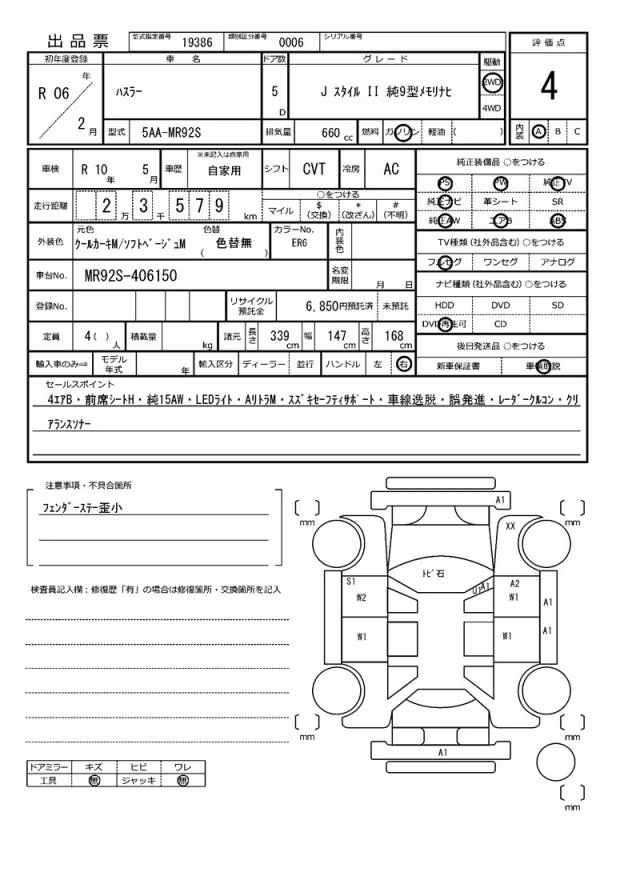 出品票 型式指定番号 19386 類別区分番号 0006 シリアル番号
評価点
4
内装 A B C
初年度登録 車名 ドア数 グレード 駆動
R 06年 2月 ハスラー 5D J スタイル II 純9型メモリナビ 2WD 4WD
型式 5AA-MR92S 排気量 660cc 燃料 ガソリン 軽油 ( )
車検 R 10年 5月 車歴 ※未記入は自家用 自家用 シフト CVT 冷房 AC
走行距離 2万3千579km
○をつける
マイル $(交換) *(改ざん) #(不明)
外装色 元色 クールカーキM/ソフトベージュM 色替 (色替無) カラーNo. ER6 内装色
車台No. MR92S-406150 名変期限 月 日
登録No. リサイクル預託金 6,850円預託済 未預託
定員 4( )人 積載量 kg 諸元 長さ 339cm 幅 147cm 高さ 168cm
輸入車のみ⇨ モデル年式 年 輸入区分 ディーラー 並行 ハンドル 左 右
純正装備品 ○をつける
PS PW 純正TV
純正ナビ 革シート SR
純正AW エアB ABS
TV種類 (社外品含む) ○をつける
フルセグ ワンセグ アナログ
ナビ種類 (社外品含む) ○をつける
HDD DVD SD
DVD再生可 CD
後日発送品 ○をつける
新車保証書 車輌取説
セールスポイント
4エアB・前席シートH・純15AW・LEDライト・AリトラM・スズキセーフティサポート・車線逸脱・誤発進・レーダークルコン・クリ
アランスソナー
注意事項・不具合箇所
フェンダーステー歪小
検査員記入欄：修復歴「有」の場合は修復箇所・交換箇所を記入
ドアミラー キズ ヒビ ワレ
工具 無 ジャッキ 無
A1
[ ] mm
[ ] mm
XX
トビ石
S1
W2
U1
A1
A2
W1
A1
W1
W1
A1
[ ] mm
[ ] mm
A1
[ ] mm